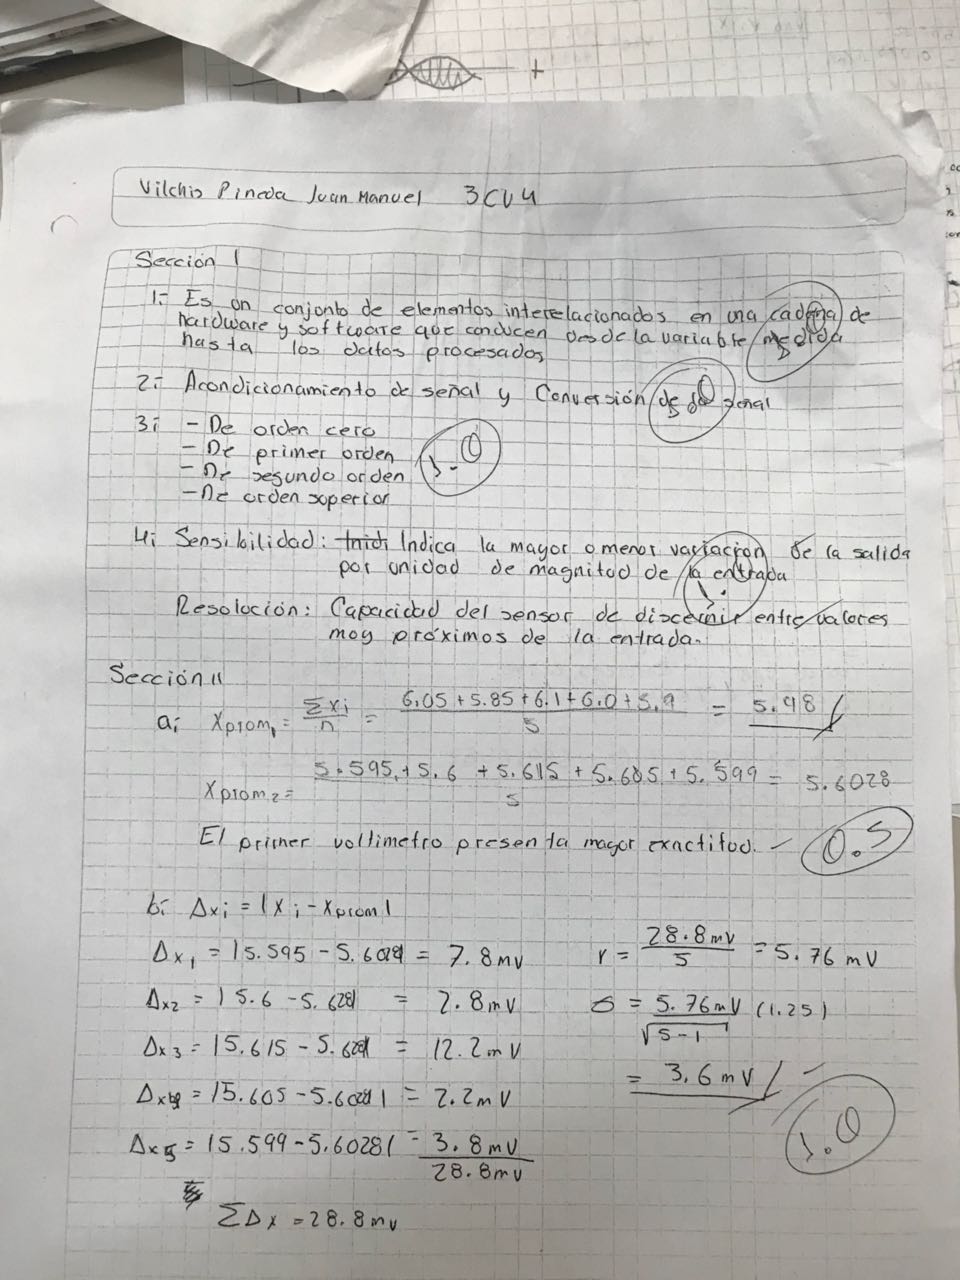 Vilchis Pineda Juan Manuel 3CV4
Sección I
1.- Es un conjunto de elementos interelacionados en una cadena de
hardware y software que conducen desde la variable medida
hasta los datos procesados
1.0
2.- Acondicionamiento de señal y Conversión de señal
1.0
3.- - De orden cero
- De primer orden
- De segundo orden
- De orden superior
1.0
4.- Sensibilidad: Indica la mayor o menor variación de la salida
por unidad de magnitud de la entrada
Resolución: Capacidad del sensor de discernir entre valores
muy próximos de la entrada.
Sección II
a.- Xprom1 = ΣXi/n = (6.05 + 5.85 + 6.1 + 6.0 + 5.9)/5 = 5.98
Xprom2 = (5.595 + 5.6 + 5.615 + 5.605 + 5.599)/5 = 5.6028
El primer voltimetro presenta mayor exactitud.
0.5
b.- Δxi = |Xi - Xprom|
Δx1 = |5.595 - 5.6028| = 7.8mV
Δx2 = |5.6 - 5.628| = 2.8mV
Δx3 = |5.615 - 5.628| = 12.2mV
Δx4 = |5.605 - 5.6028| = 2.2mV
Δx5 = |5.599 - 5.6028| = 3.8mV
28.8mV
ΣΔx = 28.8mV
r = 28.8mV/5 = 5.76 mV
σ = 5.76mV/√5-1 (1.25)
= 3.6 mV
1.0